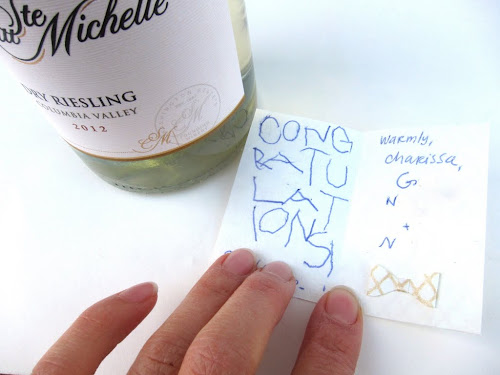 Ste
Michelle
DRY RIESLING
COLUMBIA VALLEY
2012
CONG
RATU
LAT
IONS!
warmly,
charissa,
G
N
+
N